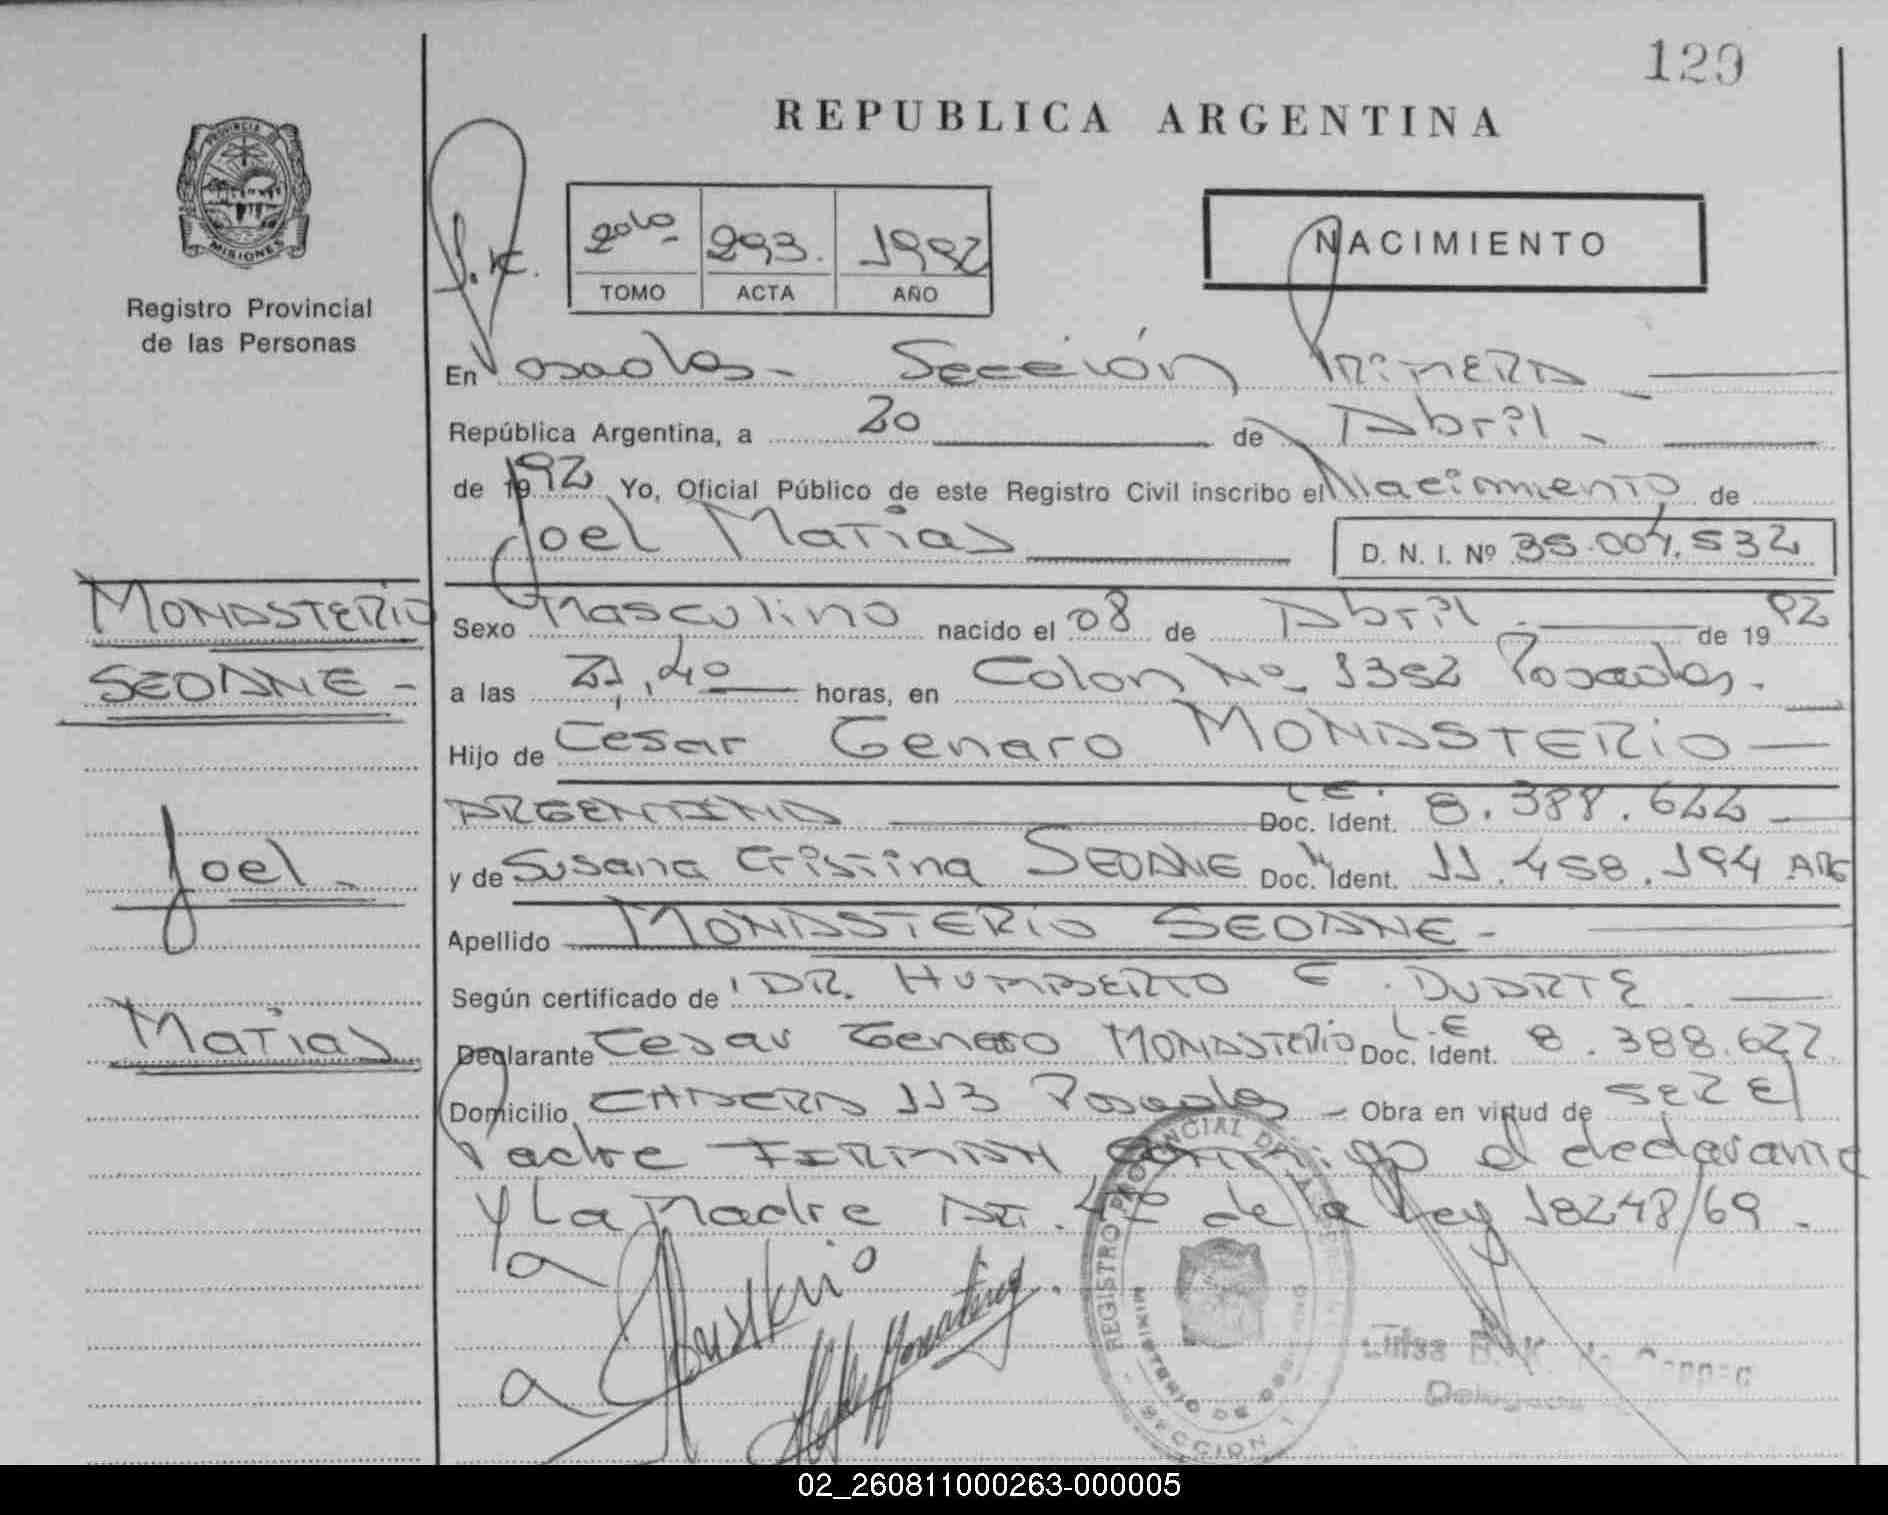 129
REPUBLICA ARGENTINA
PROVINCIA DE
MISIONES
Registro Provincial
de las Personas
2do 293. 1992
TOMO ACTA AÑO
NACIMIENTO
En Posadas - Sección Primera
República Argentina, a 20 de Abril -
de 1992 Yo, Oficial Público de este Registro Civil inscribo el Nacimiento de
Joel Matias D. N. I. Nº 35.004.532
MONASTERIO
SEOANE -
Joel -
Matias
Sexo Masculino nacido el 08 de Abril de 1992
a las 21,40 horas, en Colon Nº 1352 Posadas.
Hijo de Cesar Genaro MONASTERIO
ARGENTINA L.E. Doc. Ident. 8.388.622
y de Susana Cristina SEOANE Doc. Ident. 11.458.194 ARG
Apellido MONASTERIO SEOANE -
Según certificado de DR. HUMBERTO E. DUARTE
Declarante Cesar Genaro MONASTERIO L.E Doc. Ident. 8.388.622
Domicilio 113 Posadas - Obra en virtud de SER El
Padre FIRMAN conmigo el declarante
y La Madre Art. 4º de la Ley 18248/69 -
REGISTRO PROVINCIAL DE LAS
MINISTERIO DE GOBIERNO
SECCION 1
Luisa
Delegada
02_260811000263-000005